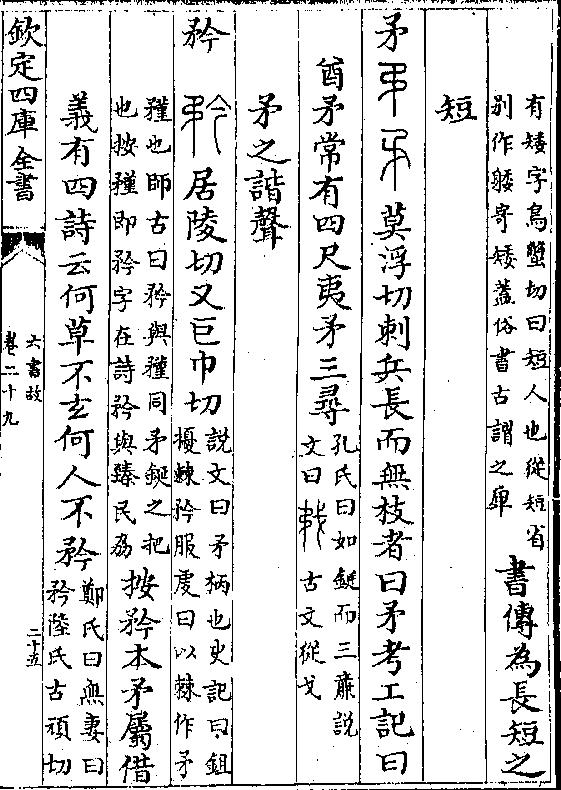 有矮字烏蟹切曰短人也從短省
别作躷寄矮葢俗書古謂之庳
書傳為長短之
短
矛莫浮切刺兵長而無枝者曰矛考工記曰
酋矛常有四尺夷矛三尋
孔氏曰如鋋而三廉說
文曰古文從戈
矛之諧聲
矜居陵切又巨巾切
說文曰矛柄也史記曰鉏
擾棘矜服虔曰以棘作矛
𥎊也師古曰矜與𥎊同矛鋋之把
也按𥎊即矜字在詩矜與臻民為
按矜本矛屬借
義有四詩云何草不玄何人不矜
鄭氏曰無妻曰
矜陸氏古頑切
欽定四庫全書
六書故
卷二十九
二十五